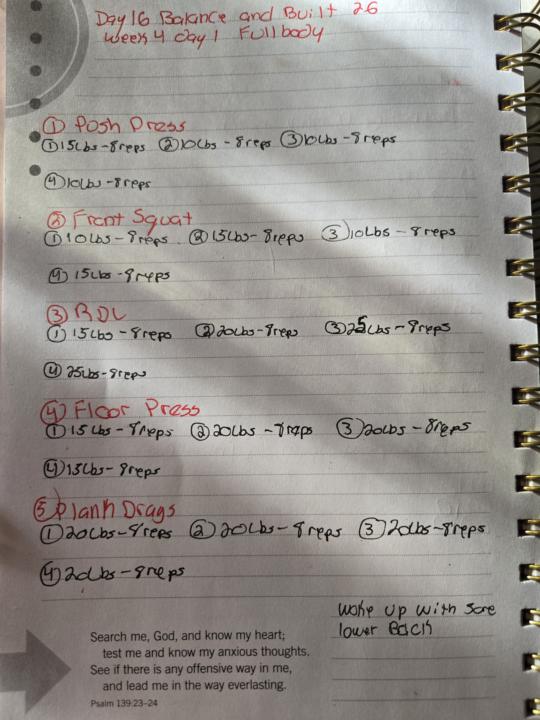 Day 16 Balance and Built 26
Week 4 day 1 Full body
① Posh Press
① 15Lbs-8reps ② 10Lbs - 8reps ③ 10Lbs-8reps
④ 10Lbs-8reps
② Front Squat
① 10Lbs-8reps ② 15Lbs-8reps ③ 10Lbs-8reps
④ 15Lbs-8reps
③ RDL
① 15Lbs-8reps ② 20Lbs-8reps ③ 25Lbs-8reps
④ 25Lbs-8reps
④ Floor Press
① 15Lbs-8reps ② 20Lbs-8reps ③ 20Lbs-8reps
④ 15Lbs-8reps
⑤ Plank Drags
① 20Lbs-8reps ② 20Lbs-8reps ③ 20Lbs-8reps
④ 20Lbs-8reps
Woke up with Sore
lower Back
Search me, God, and know my heart;
test me and know my anxious thoughts.
See if there is any offensive way in me,
and lead me in the way everlasting.
Psalm 139:23–24